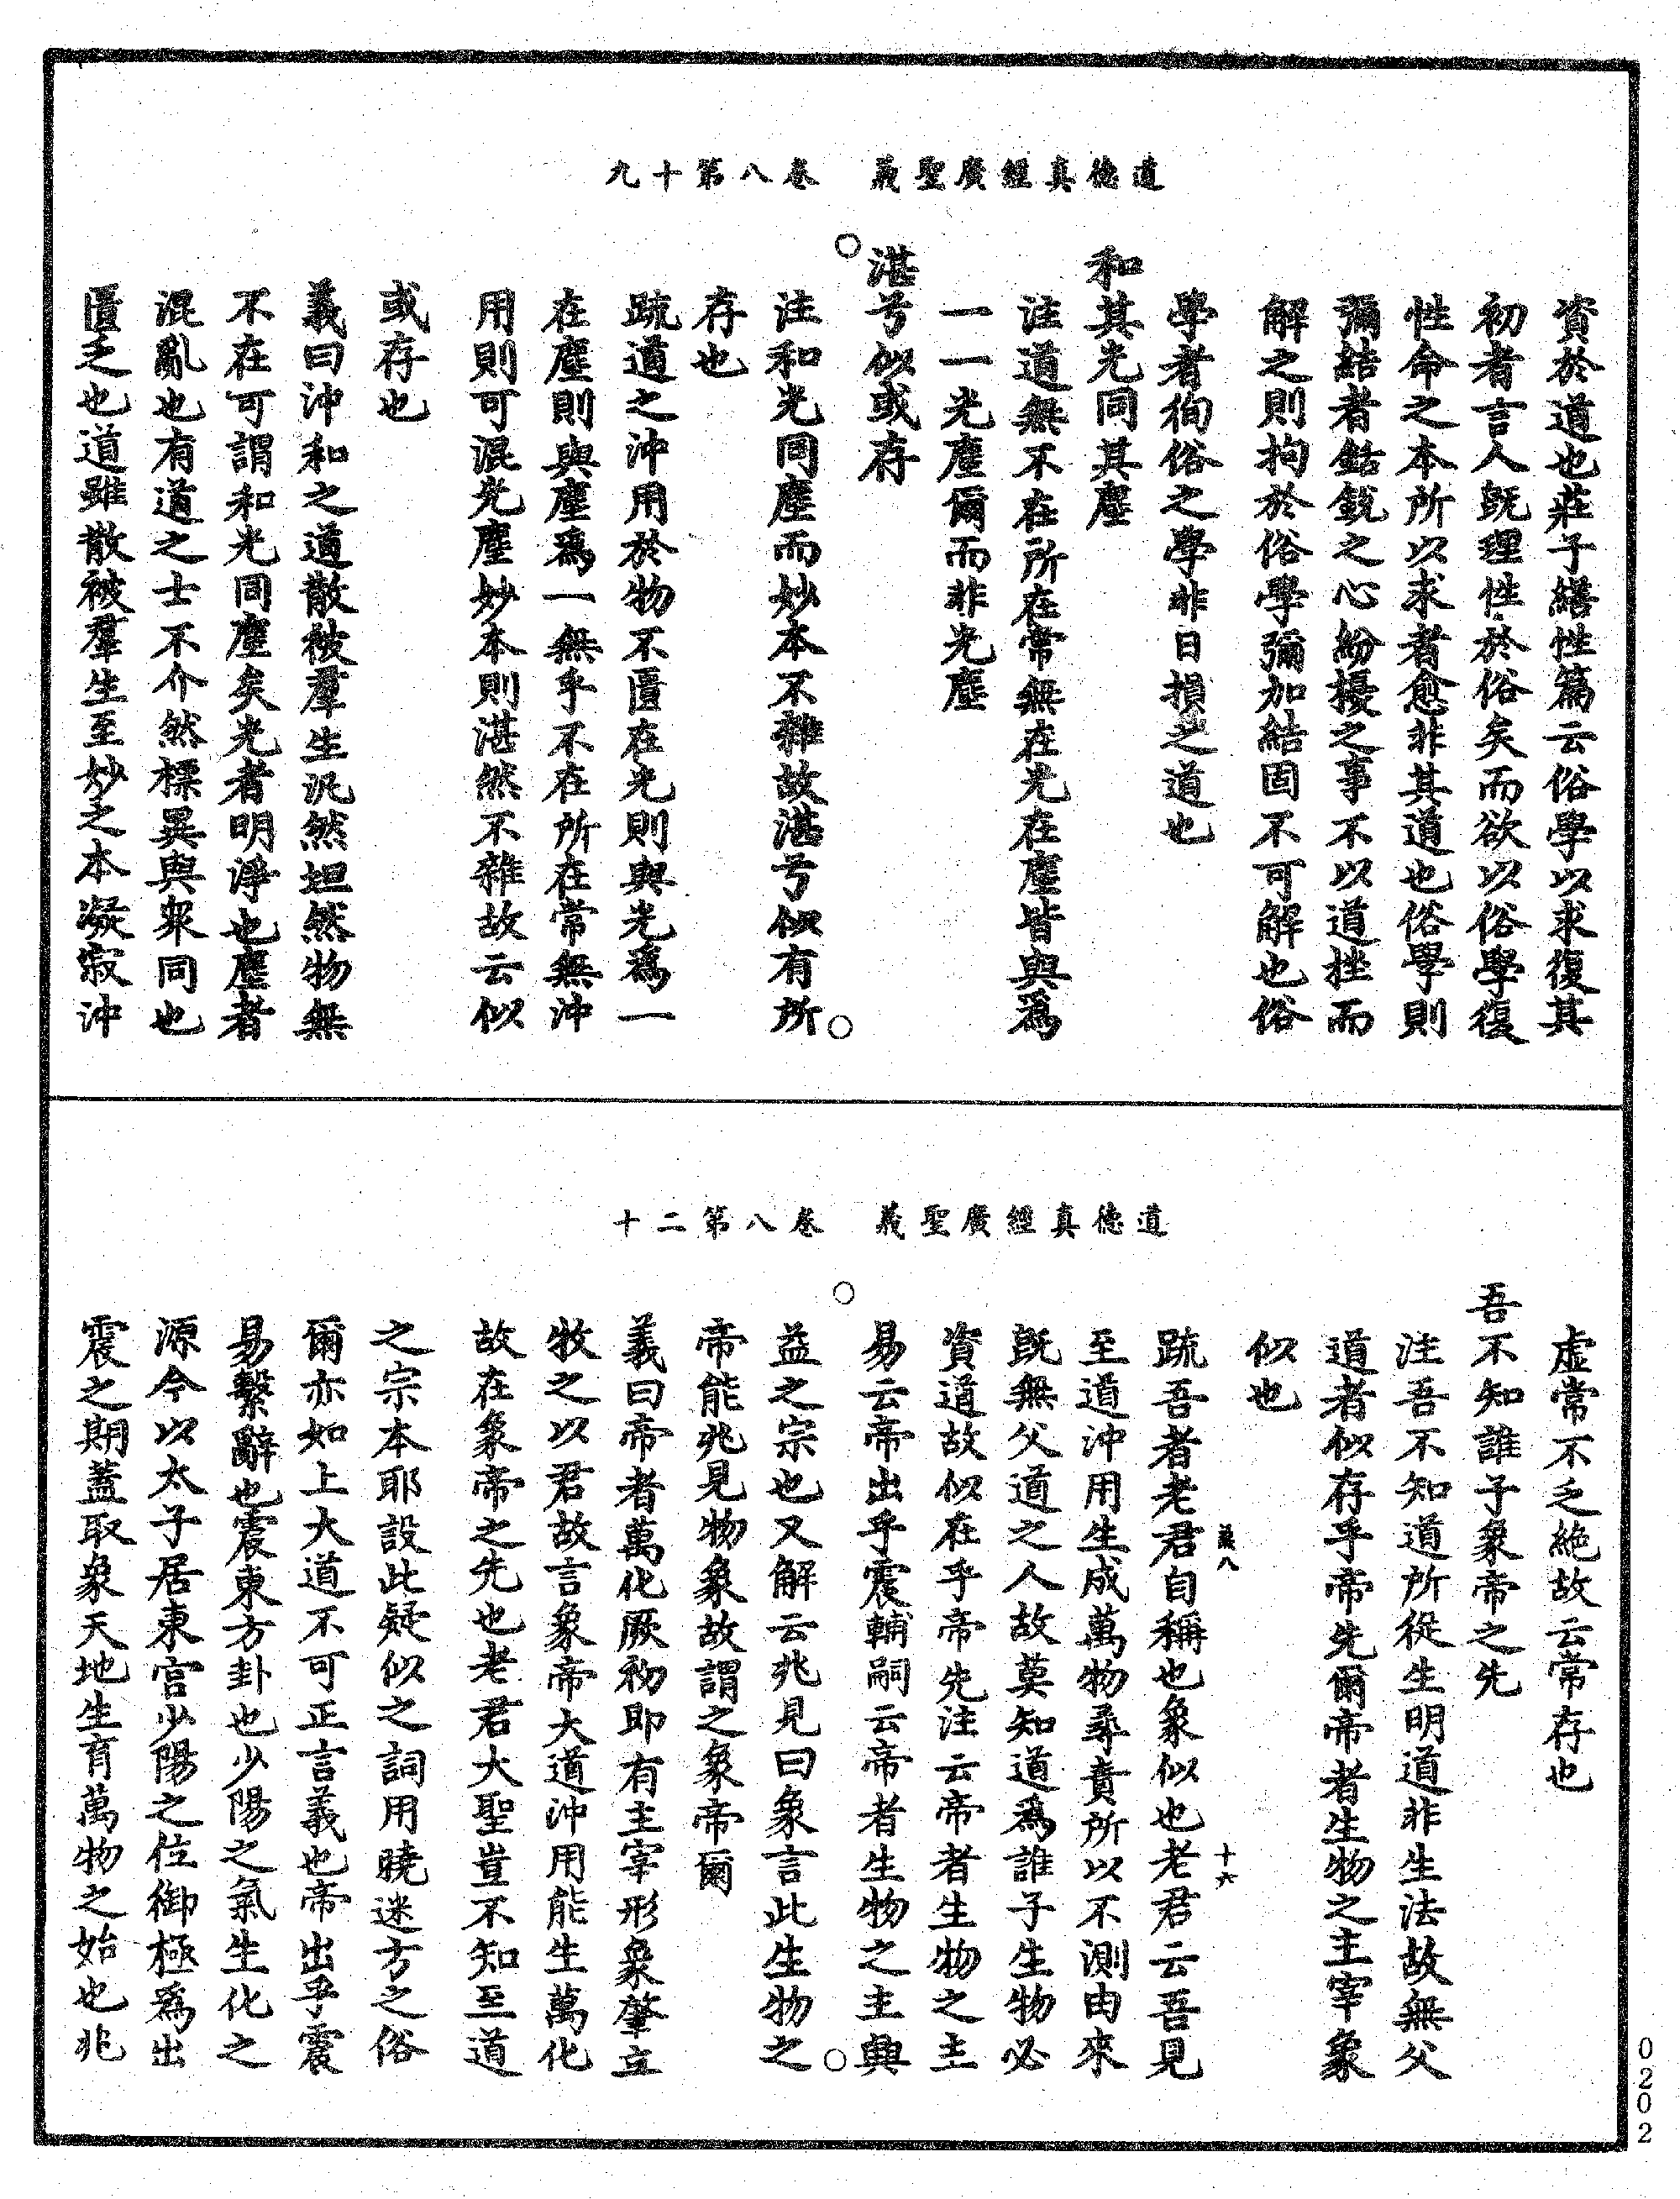 道德真經廣聖義　卷八第十九
資於道也莊子繕性篇云俗學以求復其
初者言人旣理性於俗矣而欲以俗學復
性命之本所以求者愈非其道也俗學則
彌結者銛銳之心紛擾之事不以道挫而
解之則拘於俗學彌加結固不可解也俗
學者徇俗之學非日損之道也
和其光同其塵
注道無不在所在常無在光在塵皆與爲
一一光塵爾而非光塵
湛兮似或存
注和光同塵而妙本不雜故湛兮似有所
存也
疏道之沖用於物不匱在光則與光爲一
在塵則與塵爲一無乎不在所在常無沖
用則可混光塵妙本則湛然不雜故云似
或存也
義曰沖和之道散被羣生汎然坦然物無
不在可謂和光同塵矣光者明淨也塵者
混亂也有道之士不介然標異與衆同也
匱乏也道雖散被羣生至妙之本凝寂沖
道德真經廣聖義　卷八第二十
虛常不乏絶故云常存也
吾不知誰子象帝之先
注吾不知道所從生明道非生法故無父
道者似存乎帝先爾帝者生物之主宰象
似也
疏吾者老君自稱也象似也老君云吾見
義八
十六
至道沖用生成萬物尋責所以不測由來
旣無父道之人故莫知道爲誰子生物必
資道故似在乎帝先注云帝者生物之主
易云帝出乎震輔嗣云帝者生物之主興
益之宗也又解云兆見曰象言此生物之
帝能兆見物象故謂之象帝爾
義曰帝者萬化厥初即有主宰形象肇立
牧之以君故言象帝大道沖用能生萬化
故在象帝之先也老君大聖豈不知至道
之宗本耶設此疑似之詞用曉迷方之俗
爾亦如上大道不可正言義也帝出乎震
易繫辭也震東方卦也少陽之氣生化之
源今以太子居東宮少陽之位御極爲出
震之期蓋取象天地生育萬物之始也兆
0202